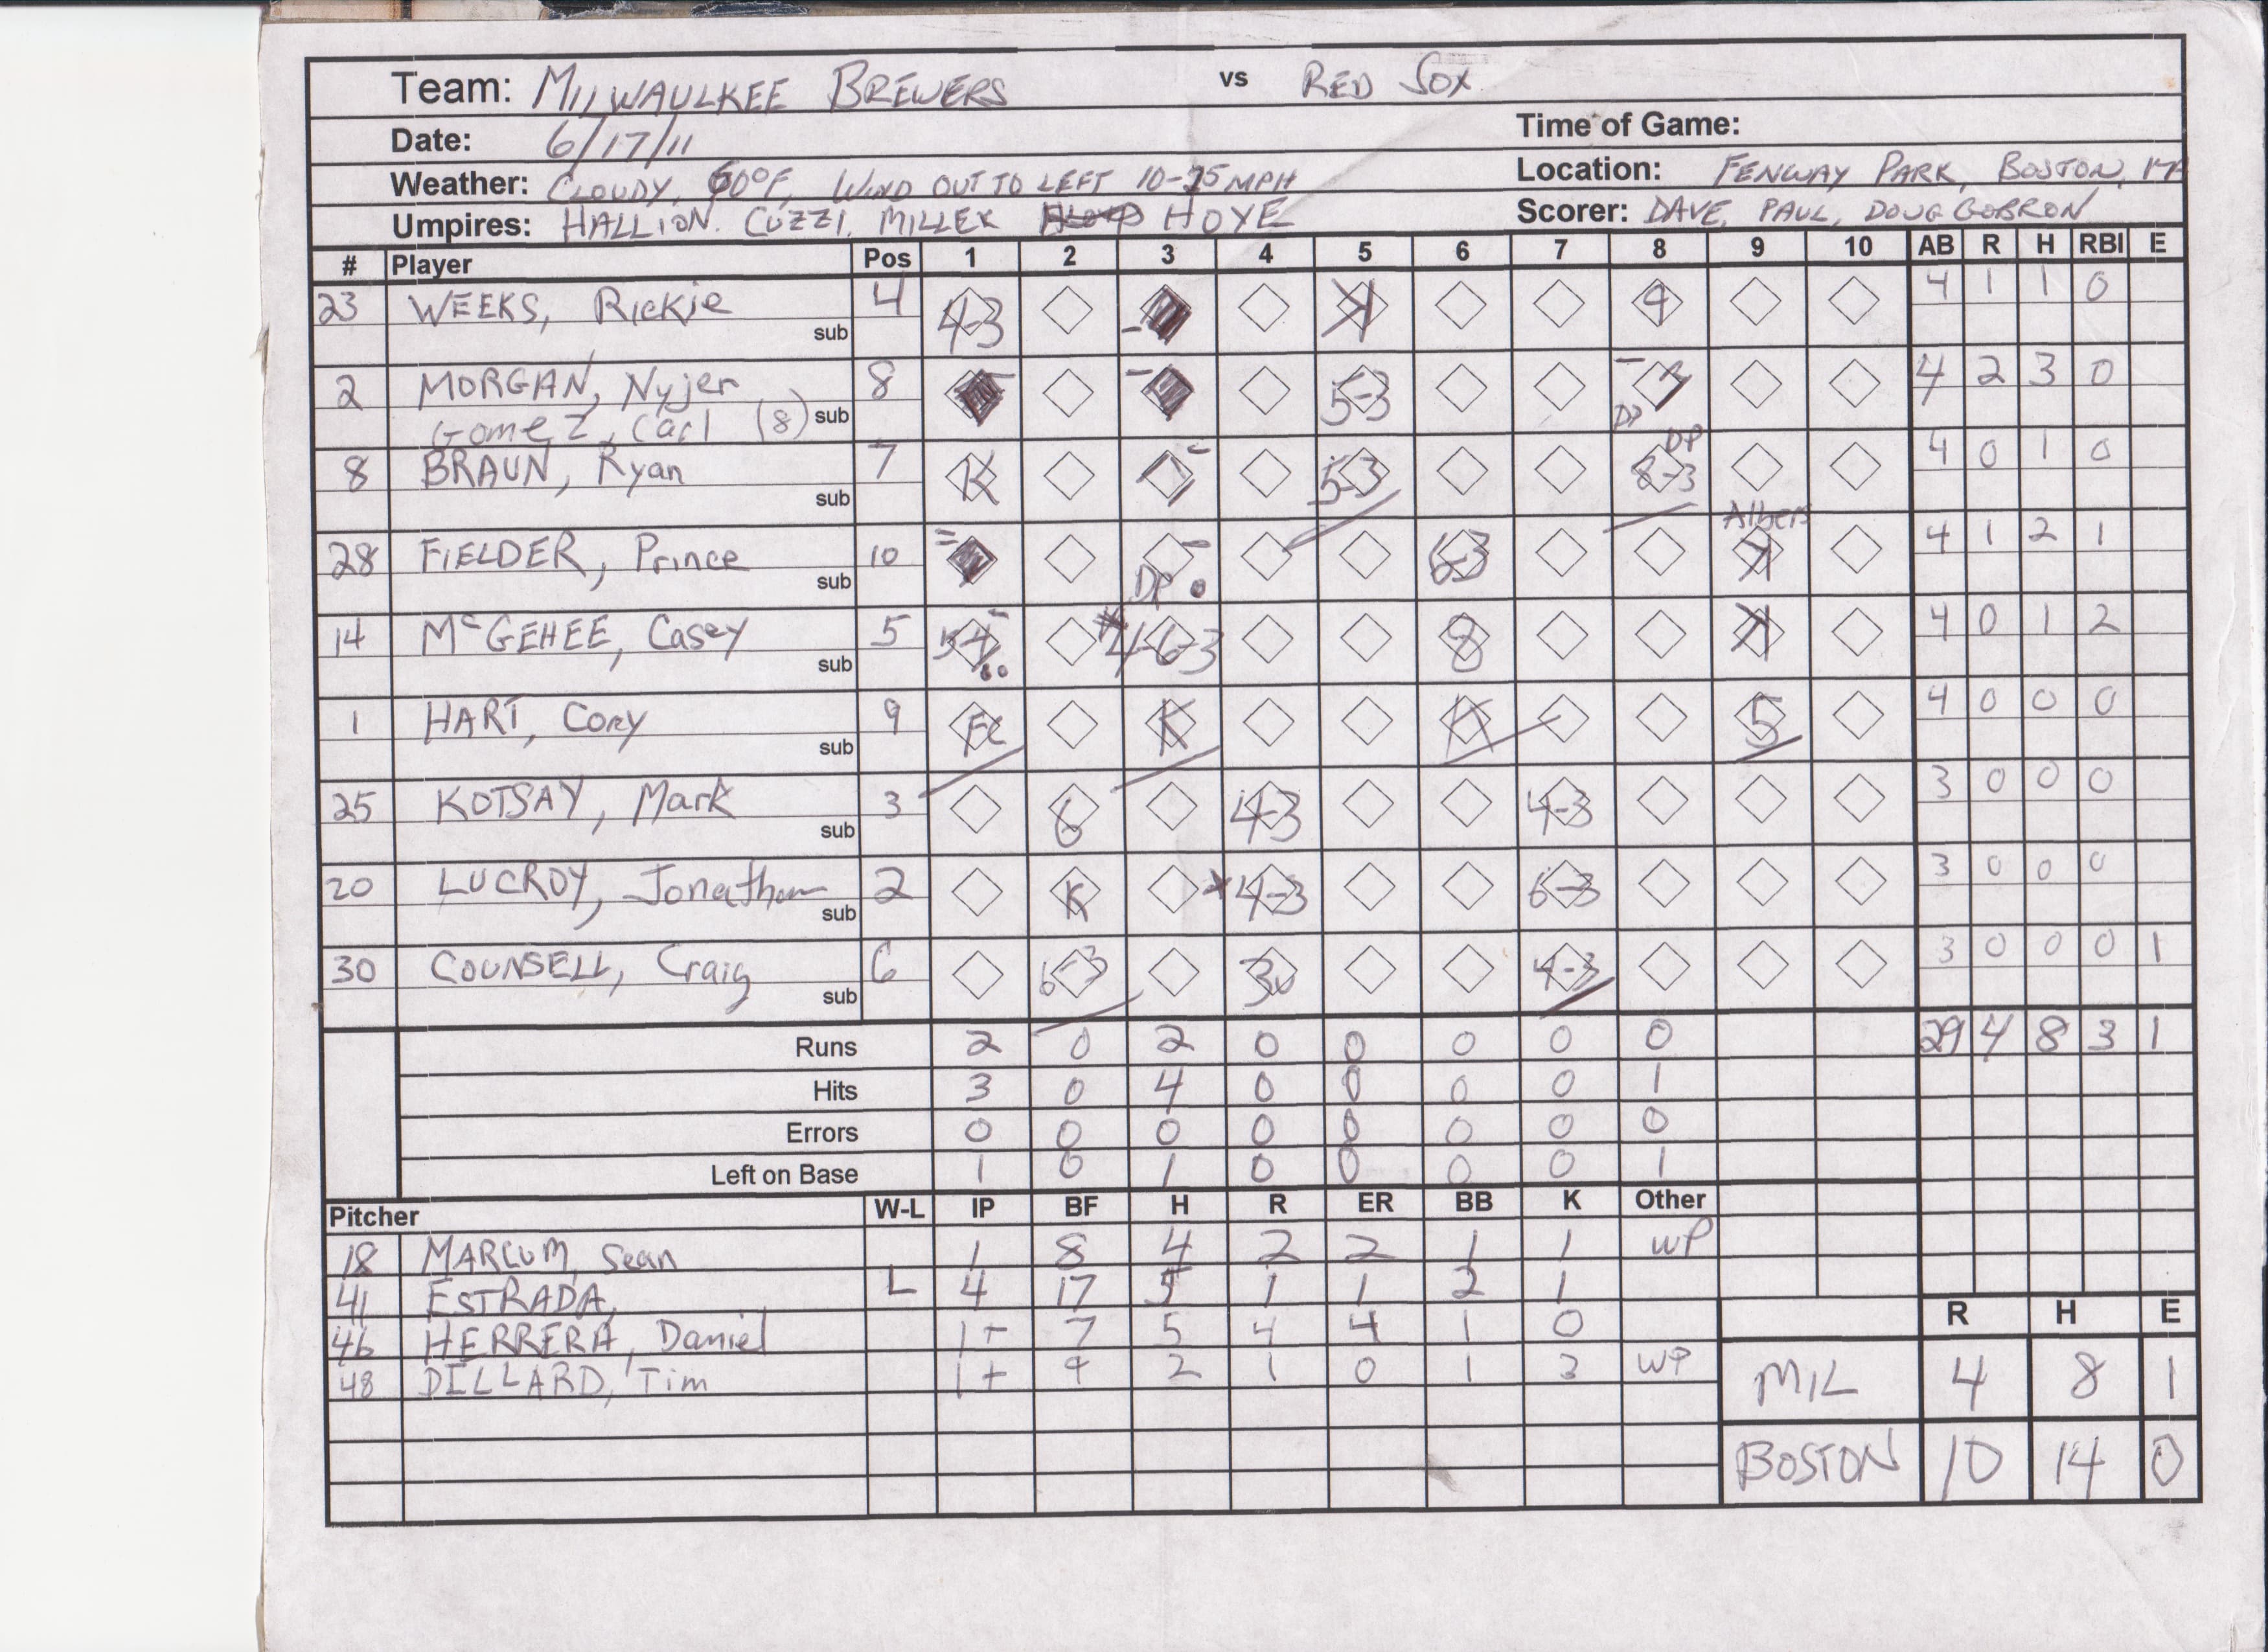 Team: MILWAULKEE BREWERS vs RED SOX
Date: 6/17/11 Time of Game:
Weather: CLOUDY, 60°F, WIND OUT TO LEFT 10-25 MPH Location: FENWAY PARK, BOSTON, MA
Umpires: HALLION. CUZZI, MILLER HOYE Scorer: DAVE, PAUL, DOUG GOBRON
# Player Pos 1 2 3 4 5 6 7 8 9 10 AB R H RBI E
23 WEEKS, Rickie 4 4-3 K 9 4 1 1 0
sub
2 MORGAN, Nyjer 8 5-3 4 2 3 0
Gomez, Carl (8) sub DP
8 BRAUN, Ryan 7 K 5-3 DP 8-3 4 0 1 0
sub
Albers
28 FIELDER, Prince 10 6-3 K 4 1 2 1
sub DP
14 McGEHEE, Casey 5 5-4 4-6-3 8 K 4 0 1 2
sub
1 HART, Cory 9 FC K K 5 4 0 0 0
sub
25 KOTSAY, Mark 3 6 4-3 4-3 3 0 0 0
sub
20 LUCROY, Jonathan 2 K 4-3 6-3 3 0 0 0
sub
30 COUNSELL, Craig 6 6-3 3U 4-3 3 0 0 0 1
sub
Runs 2 0 2 0 0 0 0 0 29 4 8 3 1
Hits 3 0 4 0 0 0 0 1
Errors 0 0 0 0 0 0 0 0
Left on Base 1 0 1 0 0 0 0 1
Pitcher W-L IP BF H R ER BB K Other
18 MARCUM, Sean 1 8 4 2 2 1 1 WP
41 ESTRADA, L 4 17 5 1 1 2 1
46 HERRERA, Daniel 1+ 7 5 4 4 1 0
48 DILLARD, Tim 1+ 9 2 1 0 1 3 WP
R H E
MIL 4 8 1
BOSTON 10 14 0